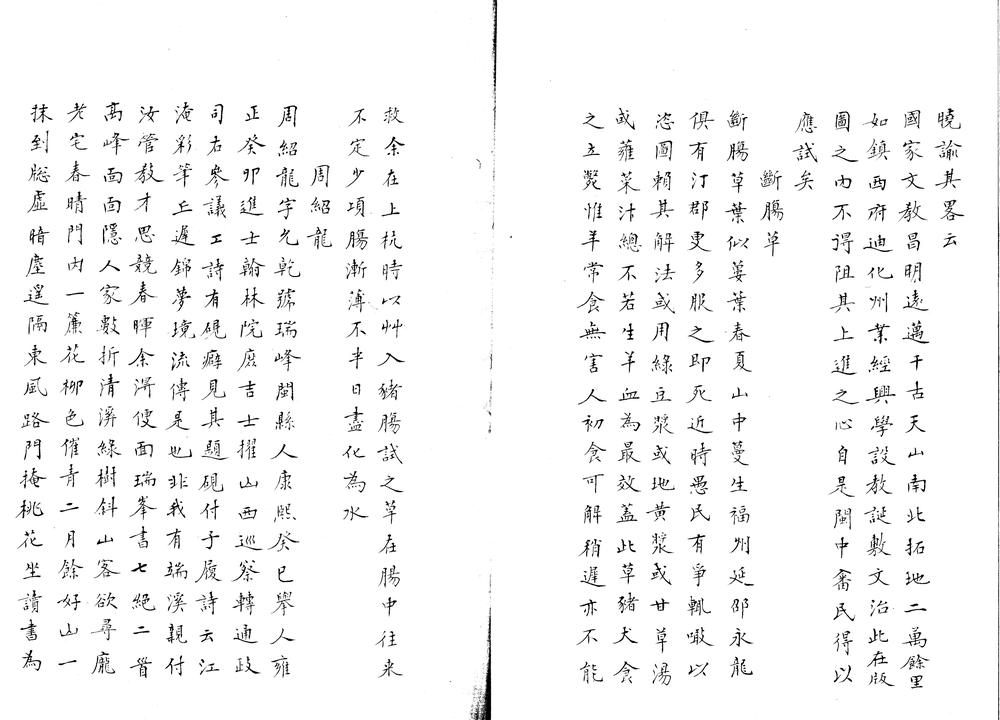 曉諭其畧云
國家文教昌明遠邁千古天山南北拓地二萬餘里
如鎮西府迪化州業經興學設教誕敷文治此在版
圖之內不得阻其上進之心自是閩中畲民得以
應試矣
斷腸草
斷腸草葉似蔞葉春夏山中蔓生福州延邵永龍
俱有汀郡更多服之即死近時愚民有爭輒噉以
恣圖賴其解法或用綠豆漿或地黃漿或甘草湯
或蕹菜汁總不若生羊血為最效蓋此草豬犬食
之立斃惟羊常食無害人初食可解稍遲亦不能
救余在上杭時以艸入豬腸試之草在腸中往来
不定少項腸漸薄不半日盡化為水
周紹龍
周紹龍字允乾號瑞峰閩縣人康熙癸巳舉人雍
正癸卯進士翰林院庶吉士擢山西巡察轉通政
司右參議工詩有硯癖見其題硯付于履詩云江
淹彩筆丘遲錦夢境流傳是也非我有端溪親付
汝管教才思競春暉余淂便面瑞峯書七絕二首
高峰面面隱人家數折清溪綠樹斜山客欲尋龐
老宅春晴門內一簾花柳色催青二月餘好山一
抹到牎虛暗塵遥隔東風路門掩桃花坐讀書為